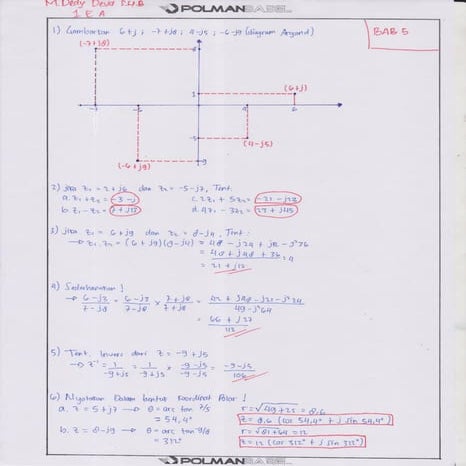 M. Dedy Deva
1 E A
POLMAN BABEL
BAB 5
1) Gambarkan 6+j ; -7+j8 ; 4-j5 ; -6-j9 (diagram Argand)
(-7+j8)
(6+j)
(4-j5)
(-6+j9)
2) jika z₁ = 2+j6 dan z₂ = -5-j7, Tent.
a. z₁+z₂ = -3-j
c. 2z₁ + 5z₂ = -21-j23
b. z₁-z₂ = 7+j13
d. 4z₁ - 3z₂ = 23+j45
3) jika z₁ = 6+j9 dan z₂ = 8-j4, Tent:
→ z₁.z₂ = (6+j9)(8-j4) = 48
4) Sederhanakan !
→ 6-j3/7-j8 = 6-j3/7-j8 × 7+j8/7+j8
49-j²64
66 + j27
113
5) Tent. Invers dari z = -9+j5
→ z⁻¹ = 1/-9+j5 = 1/-9+j5 × -9-j5/-9-j5 = -9-j5/106
6) Nyatakan dalam bentuk koordinat Polar !
a. z = 5+j7 → θ = arc tan 7/5
= 54,4°
r = √49+25 = 8,6
z = 8,6 (cos 54,4° + j sin 54,4°)
b. z = 8-j9 → θ = arc tan
= 312°
r = √81+64 = 12
z = 12 (cos 312° + j sin 312°)
POLMAN BABEL